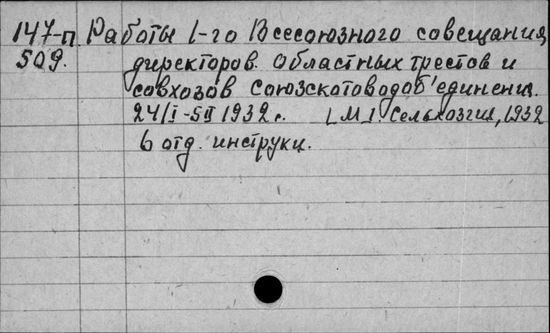 147-п Работы I-го Всесоюзного совещания
509. директоров областных трестов и
совхозов Союзскотоводоб'единени.
24/I-5/II 1932 г. [М], Сельхозгиз, 1932
6 отд. инструкц.